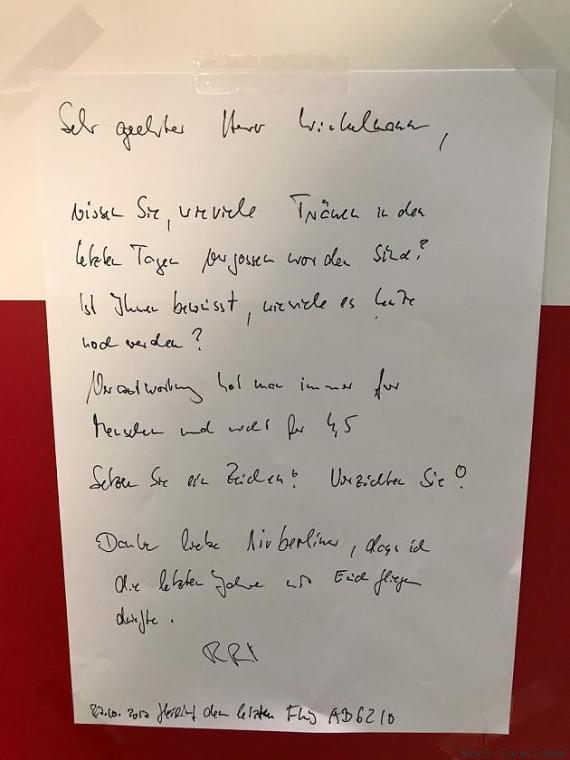 Sehr geehrter Herr Winkelmann,
wissen Sie, wieviele Tränen in den
letzten Tagen vergossen worden sind?
Ist Ihnen bewusst, wieviele es heute
noch werden?
Verantwortung hat man immer für
Menschen und nicht für 4,5
Setzen Sie ein Zeichen! Verzichten Sie!
Danke liebe Airberliner, dass ich
die letzten Jahre mit Euch fliegen
durfte.
27.10.2017 den letzten Flug AB6210
Focus Online